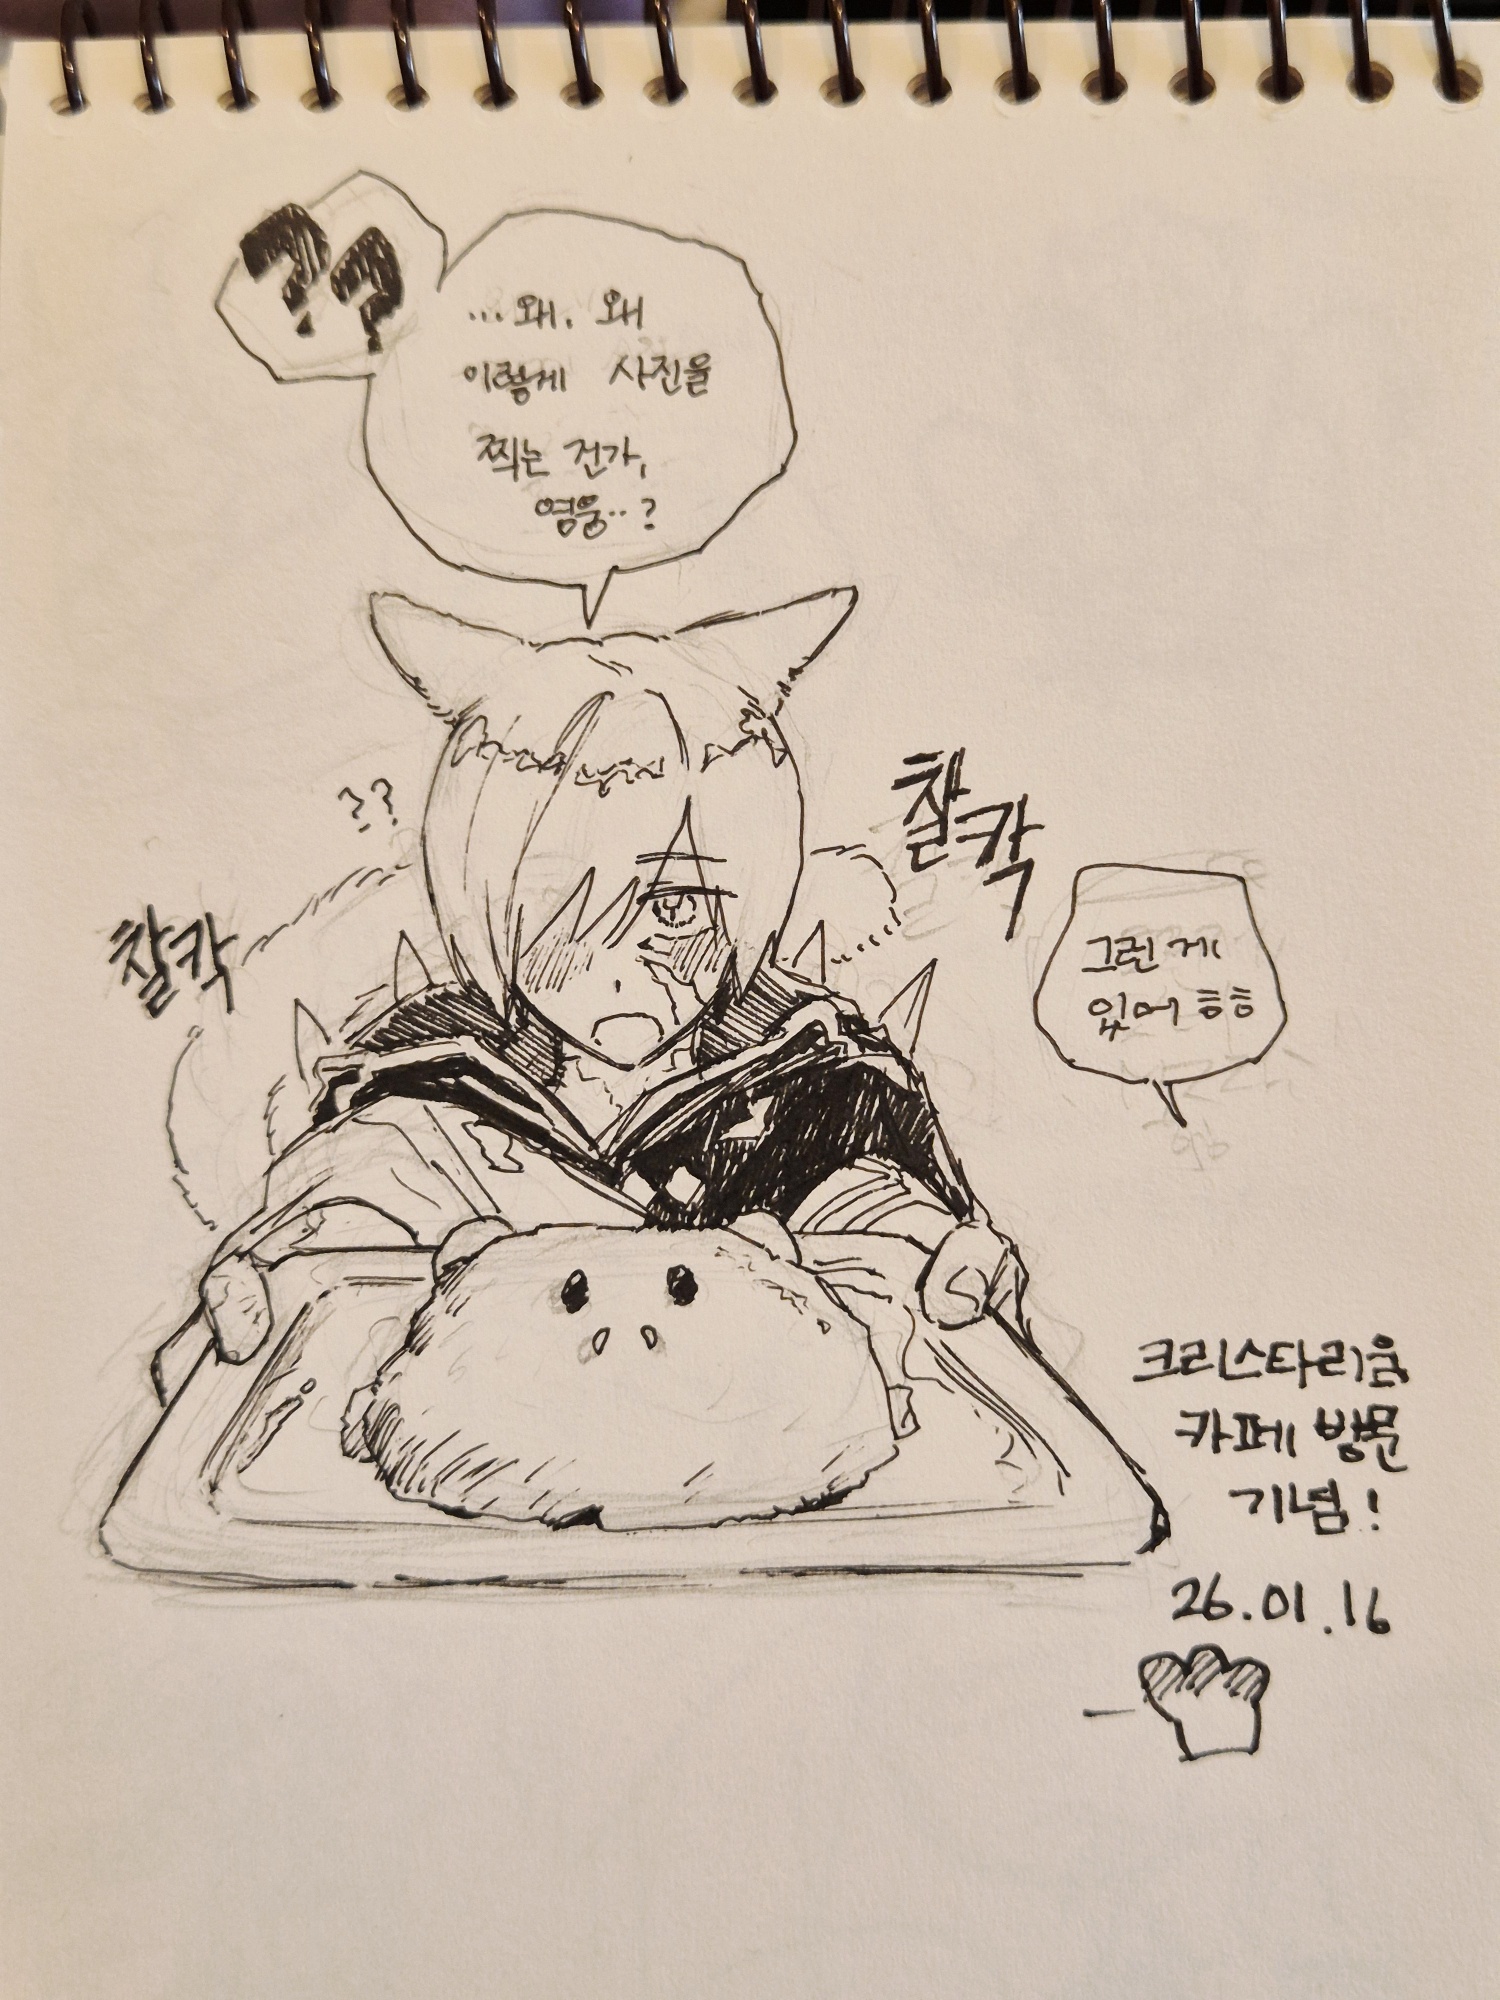 ??
...왜, 왜
이렇게 사진을
찍는 건가,
영웅..?
??
찰칵
찰칵
그런 게
있어 흐흐
크리스타리움
카페 방문
기념!
26.01.16